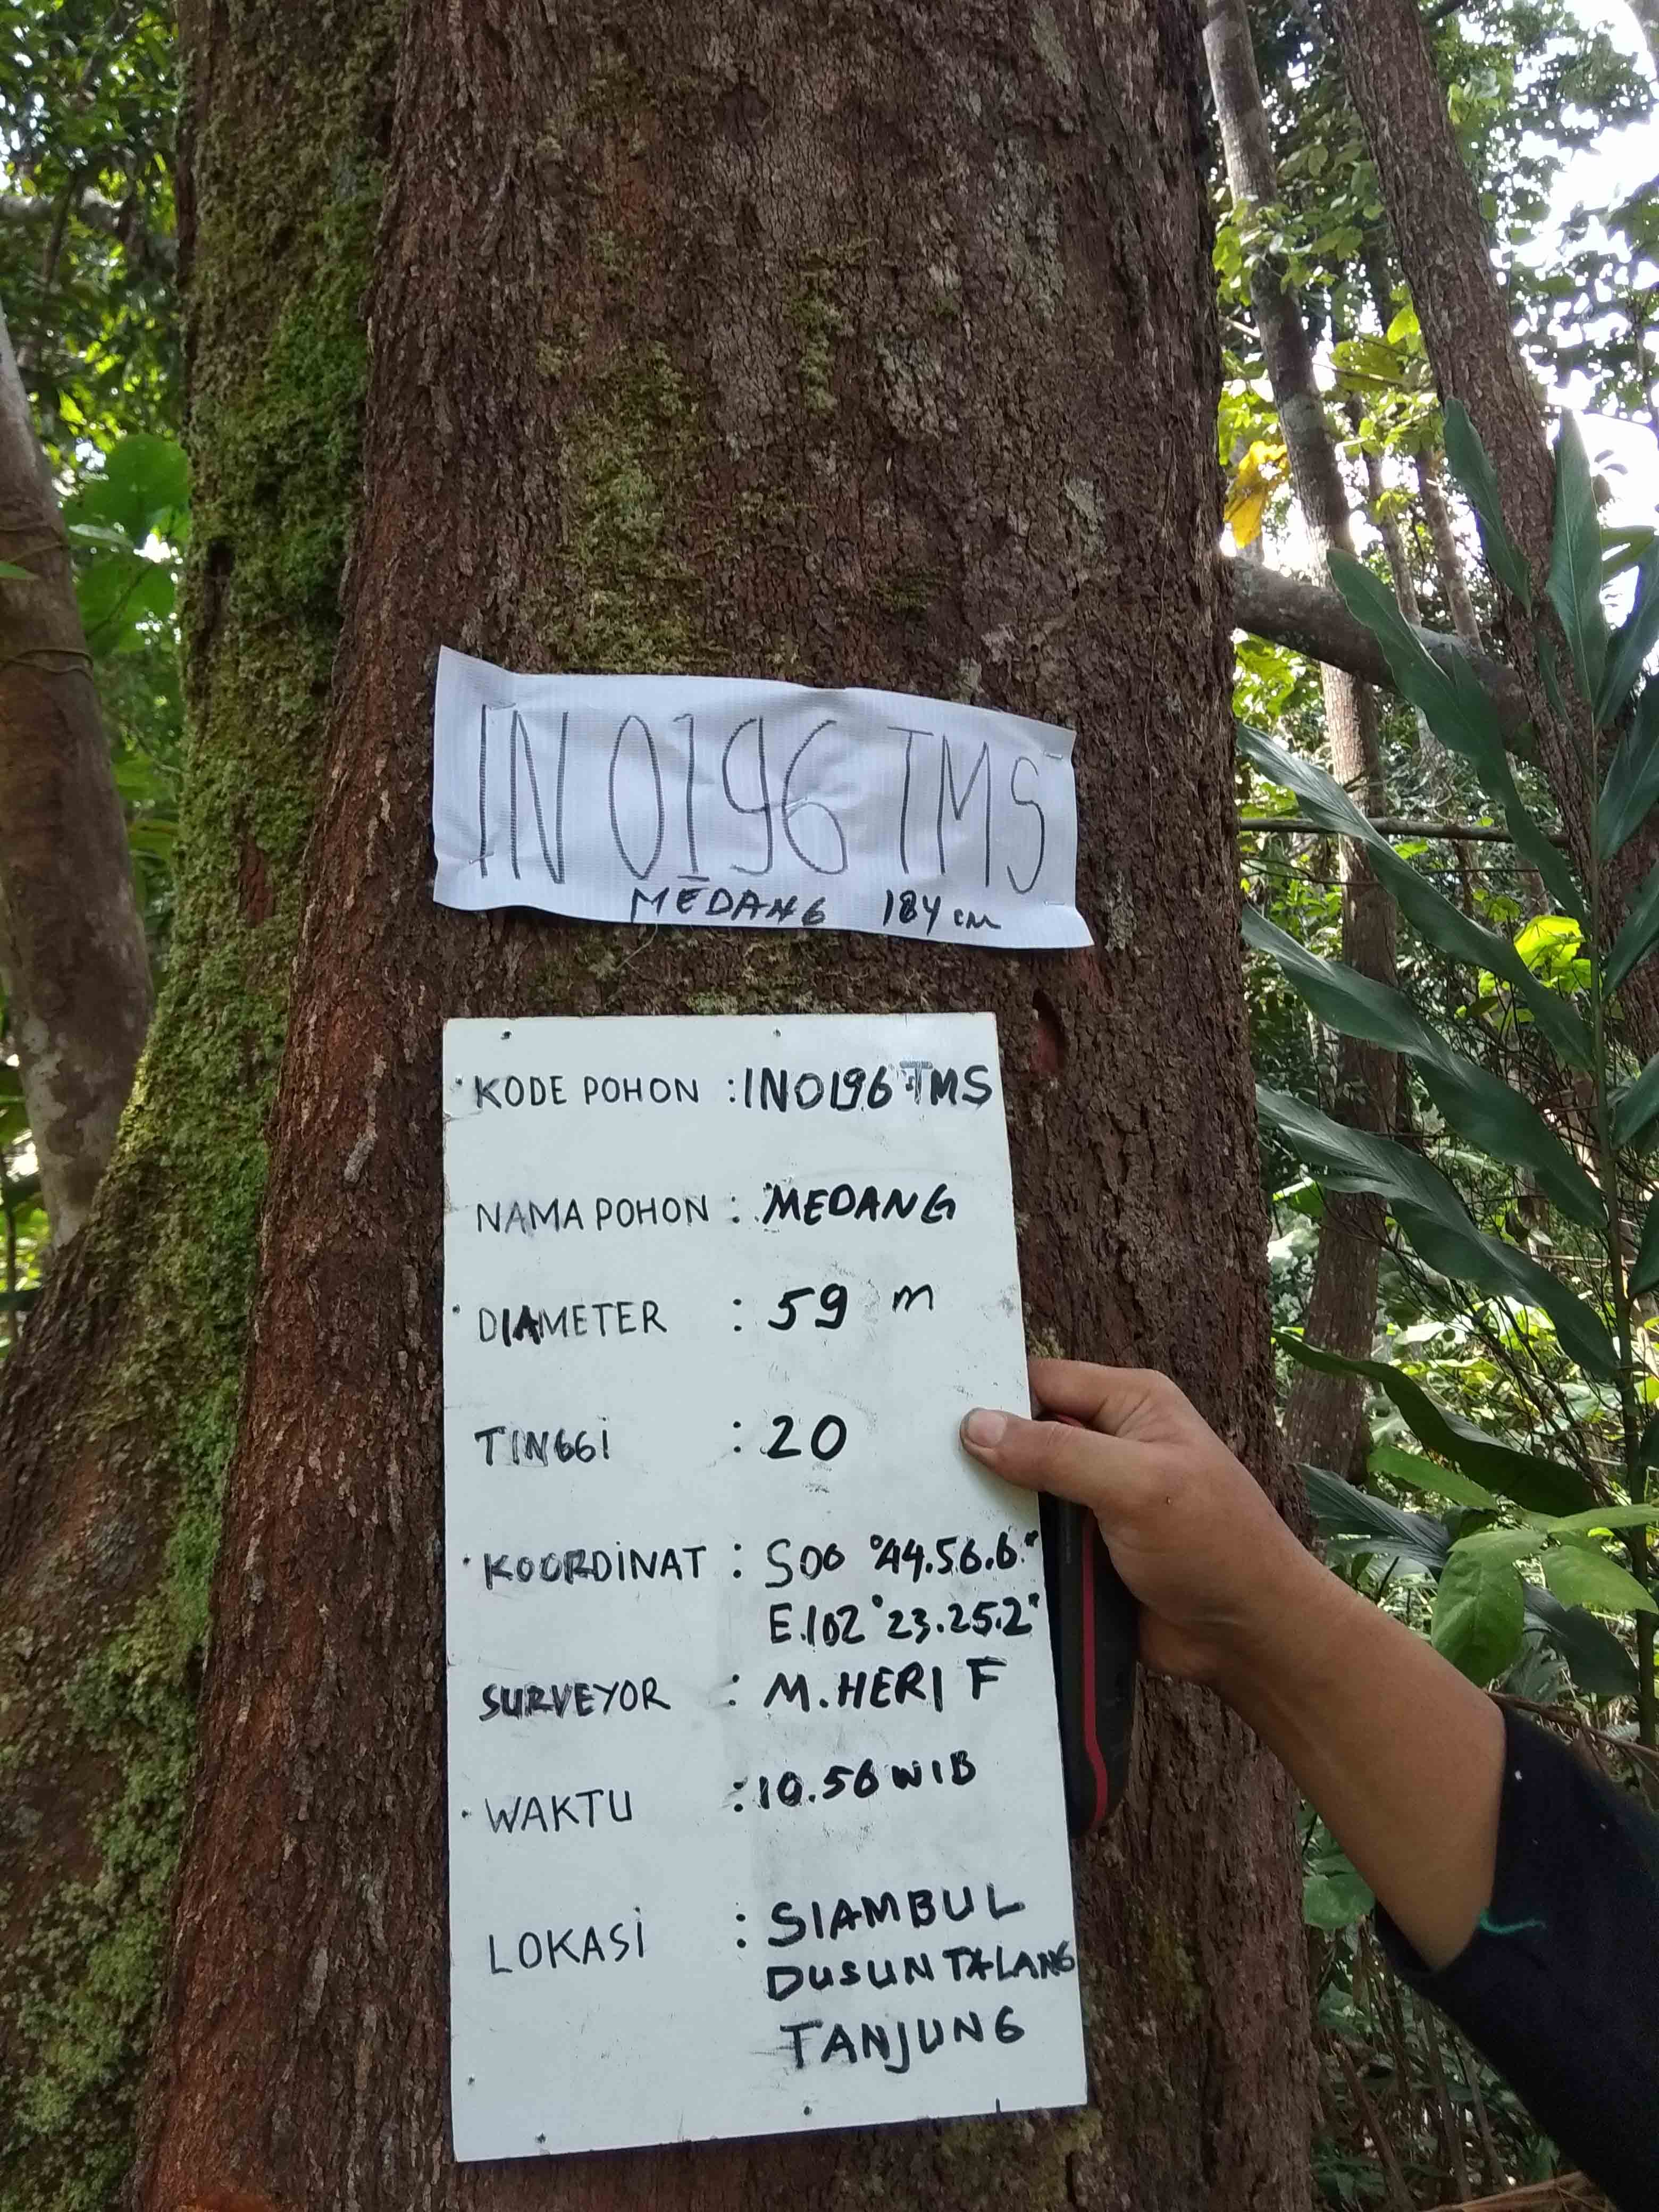 IN 0196 TMS
MEDANG 184 cm
KODE POHON : IN0196 TMS
NAMA POHON : MEDANG
DIAMETER : 59 m
TINGGI : 20
KOORDINAT : S00 °44.56.6"
E.102°23.25.2"
SURVEYOR : M.HERI F
WAKTU : 10.56 WIB
LOKASI : SIAMBUL
DUSUN TALANG
TANJUNG